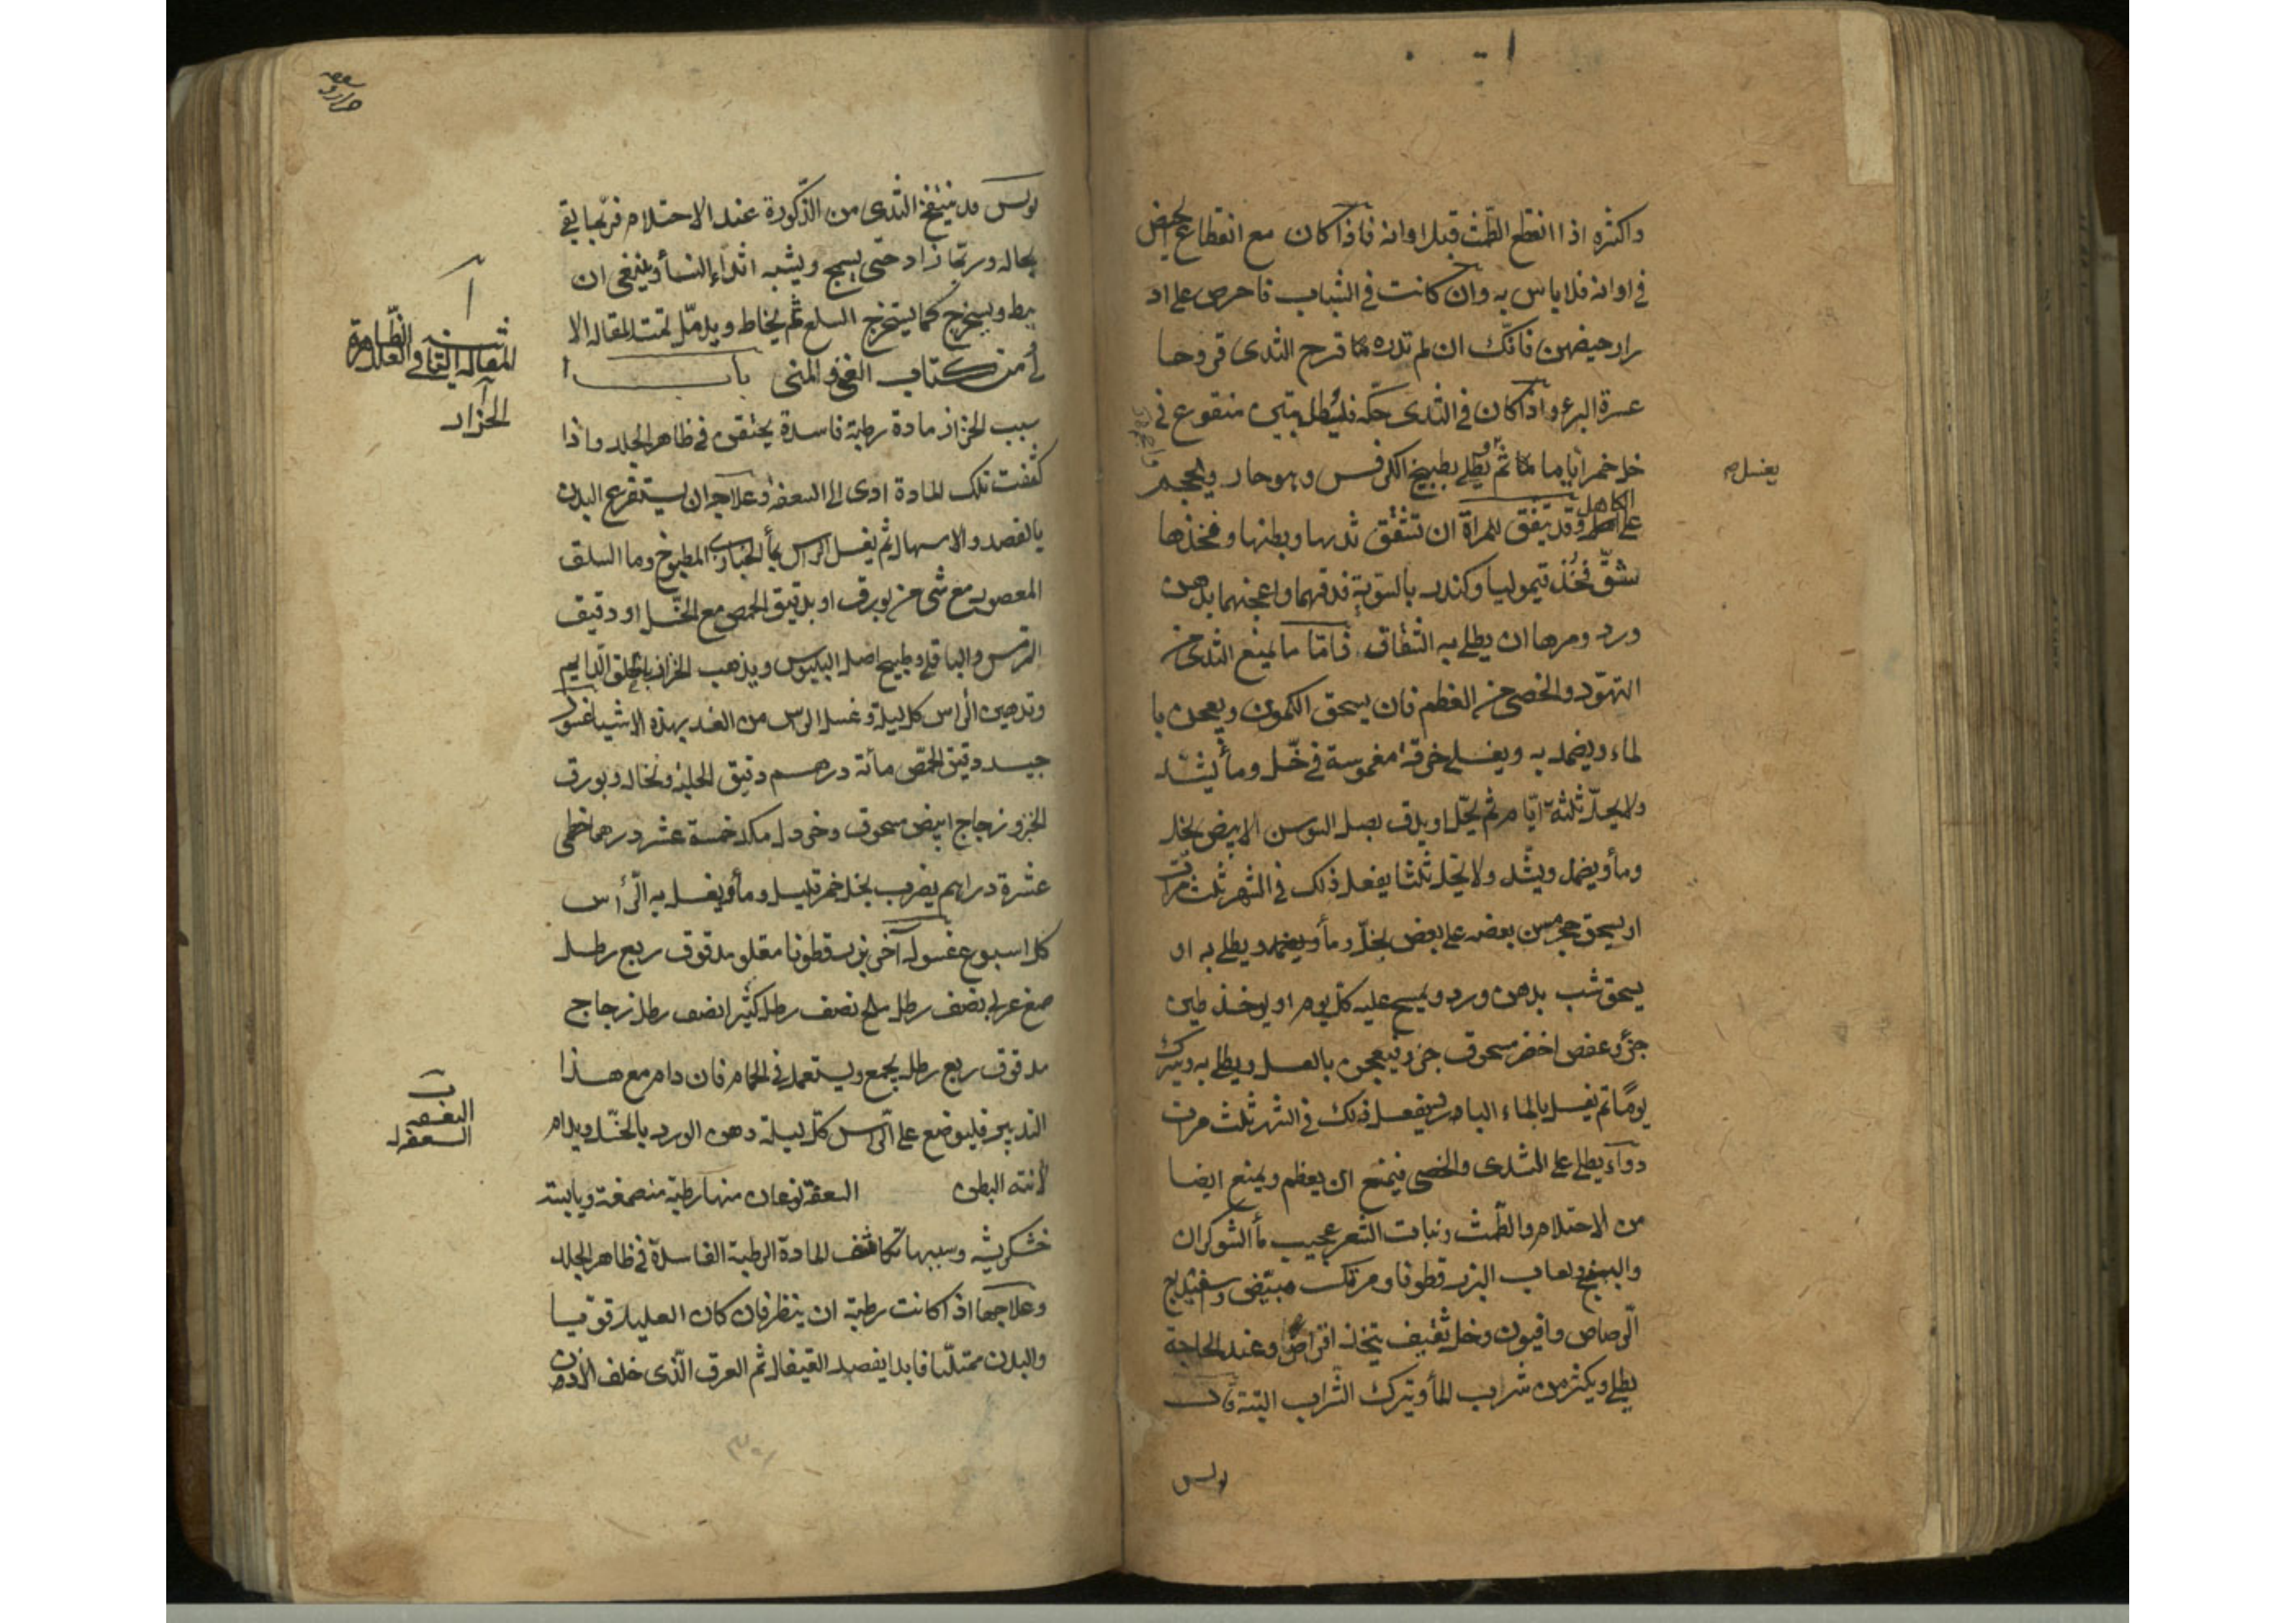 واكثره اذا انقطع الطمث قبل اوانه فاذا كان مع انقطاع الحيض
في اوانه فلا باس به وان كانت في الشباب فاحرص على اد
رار حيضهن فانك ان لم تدره قرح الثدى قروحا
عسرة البرء واذا كان في الثدى حكة فليطل بتين منقوع في
خل خمر اياما ثم يطلى بطبيخ الكرفس وهو حار ويحجم
يغسل
على الكاهل وقد يتفق للمراة ان تتشقق ثديها وبطنها وفخذها
شق فخذ قيموليا وكندر بالسوية فدقهما واعجنهما بدهن
ورد ومرها ان يطلى به الشقاق فاما ما يمنع الثدى من
التهود والخصى من العظم فان يسحق الكمون ويعجن با
لماء ويضمد به ويغسل خرقة مغموسة في خل وماء يشد
ولا يحل ثلثة ايام ثم يحل او يدق بصل السوسن الابيض بخل
وماء ويضمد ويشد ولا يحل ثلثا يفعل ذلك في الشهر ثلث مرات
او يسحق حجر مسن بعضه على بعض بخل وماء ويضمد ويطلى به او
يسحق شب بدهن ورد ويمسح عليه كل يوم او يوخذ طين
جزء وعفص اخضر مسحوق جزء فيعجن بالعسل ويطلى به ويترك
يوما ثم يغسل بالماء البارد يفعل ذلك في الشهر ثلث مرات
دواء يطلى على الثدى والخصى فيمنع ان يعظم ويمنع ايضا
من الاحتلام والطمث ونبات الشعر عجيب ماء الشوكران
والبنج ولعاب البزر قطونا ومرتك مبيض وسفيذاج
الرصاص وافيون وخل ثقيف يتخذ اقراص وعند الحاجة
يطلى ويكثر من شراب الماء ويترك الشراب البتة قال
بولس
بولس قد ينتفخ الثدى من الذكورة عند الاحتلام فربما بقى
بحاله وربما زاد حتى يسمج ويشبه اثداء النساء وينبغى ان
يبط ويخرج كما يستخرج السلع ثم يخاط ويدمل تمت المقاله الا
لى من كتاب الغنى والمنى باب ا
المقالة الثانية في العلل الظاهرة
الحزاز
سبب الحزاز مادة رطبة فاسدة يحتقن في ظاهر الجلد واذا
كثفت تلك المادة ادى الى السعفة وعلاجه ان يستفرغ البدن
بالفصد والاسهال ثم يغسل الراس بماء الخبازى المطبوخ وما السلق
المعصور مع شى من بورق او بدقيق الحمص مع الخل او دقيق
الترمس والباقلى وطبيخ اصل ويذهب الحزاز بالحلق الدايم
وتدهين الراس كل ليلة وغسل الراس من الغد بهذه الاشيا غسول
جيد دقيق الحمص مائة درهم دقيق الحلبة ونخالة وبورق
الخبز وزجاج ابيض مسحوق وخردل مكد خمسة عشر درهما خطمى
عشرة دراهم يضرب بخل خمر قليل وماء ويغسل به الراس
كل اسبوع غسول اخر بزر قطونا مقلو مدقوق ربع رطل
صمغ عربى نصف رطل ملح نصف رطل كثيرا نصف رطل زجاج
مدقوق ربع رطل يجمع ويستعمل في الحمام فان دام مع هذا
التدبير فليوضع على الراس كل ليلة دهن الورد بالخل ويدام
ب
السعفه
لانته البطن السعفة نوعان منها رطبة منصمغة ويابسة
خشكريشة وسببها تكاثف المادة الرطبة الفاسدة في ظاهر الجلد
وعلاجها اذا كانت رطبة ان ينظر فان كان العليل قويا
والبدن ممتلئا فابدا بفصد القيفال ثم العرق الذى خلف الاذن